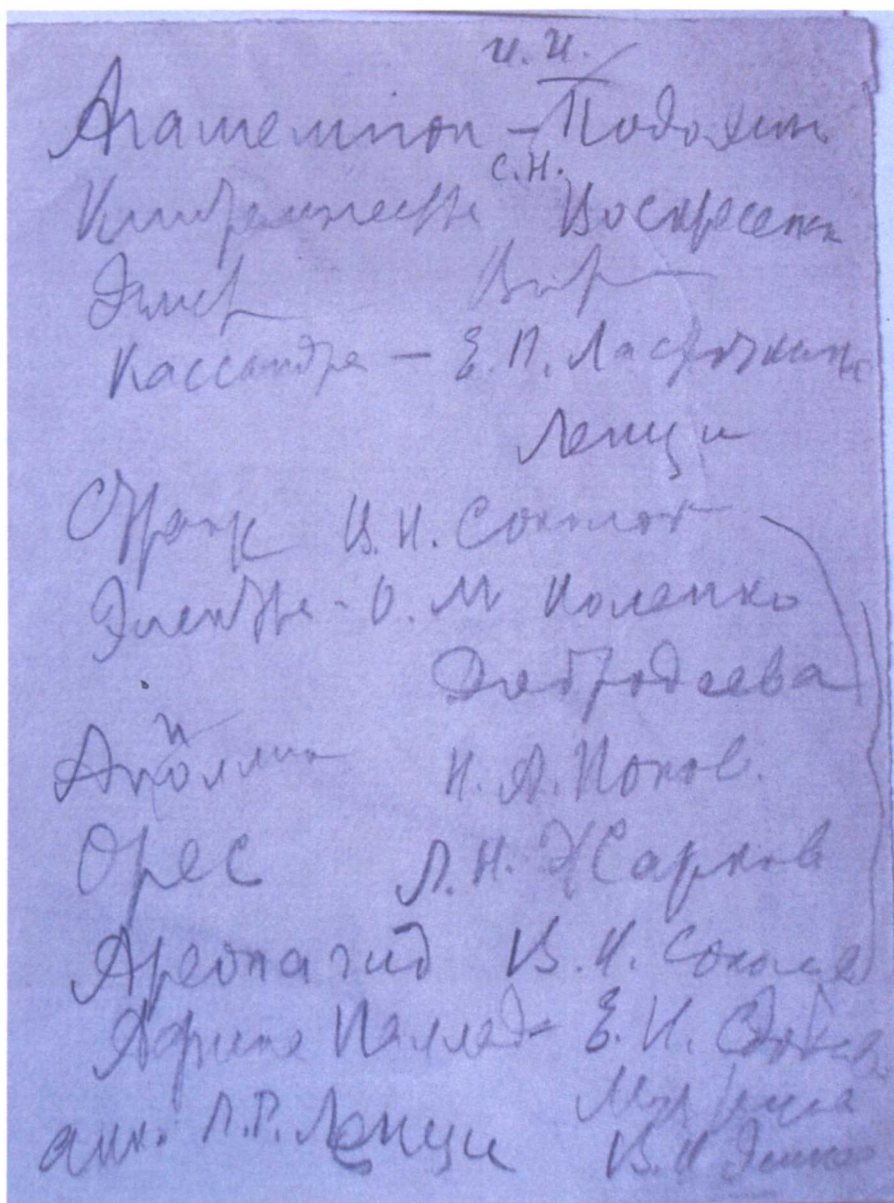 и. и.
Агамемнон – Подорин
с.н.
Клитемнестра Воскресенск
Эгист
Кассандра – Е. П. Ласточкина
Ленци
Страж В. И. Соколов
Электра - О. М Коленко
Добродеева
Аполлон Н. А. Попов.
Орес Л. Н. Жарков
Ареопагид В. И. Соколов
Афина Паллад- Е. И.
акк. Л. Р. Ленци В. И